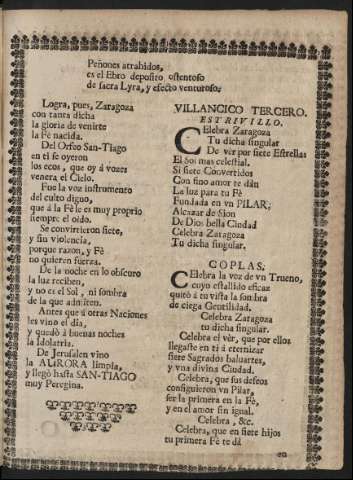 Peñones atrahidos,
es el Ebro deposito ostentoso
de sacra Lyra, y efecto venturoso.
Logra, pues, Zaragoza
con tanta dicha
la gloria de venirte
la Fè nacida.
Del Orfeo San-Tiago
en ti se oyeron
los ecos, que oy à vozes
venera el Cielo.
Fue la voz instrumento
del culto digno,
que à la Fè le es muy proprio
siempre el oìdo.
Se convirtieron siete,
y sin violencia,
porque razon, y Fè
no quieren fuerza.
De la noche en lo obscuro
la luz reciben,
y no es el Sol, ni sombra
de la que admiten.
Antes que à otras Naciones
les vino el dia,
y quedò à buenas noches
la Idolatria.
De Jerusalen vino
la AURORA limpia,
y llegò hasta SAN-TIAGO
muy Peregina.
VILLANCICO TERCERO.
ESTRIVILLO.
Celebra Zaragoza
Tu dicha singular
De vèr por siete Estrellas
El Sol mas celestial.
Si siete Convertidos
Con fino amor te dàn
La luz para tu Fè
Fundada en vn PILAR;
Alcazar de Sion
De Dios bella Ciudad
Celebra Zaragoza
Tu dicha singular.
COPLAS.
Celebra la voz de vn Trueno,
cuyo estallido eficaz
quitò à tu vista la sombra
de ciega Gentilidad.
Celebra Zaragoza
tu dicha singular.
Celebra el vèr, que por ellos
llegaste en ti à eternizar
siete Sagrados baluartes,
y vna divina Ciudad.
Celebra, que sus deseos
consiguieron vn Pilar,
ser la primera en la Fè,
y en el amor sin igual.
Celebra, &c.
Celebra, que en siete hijos
tu primera Fè te dà
en